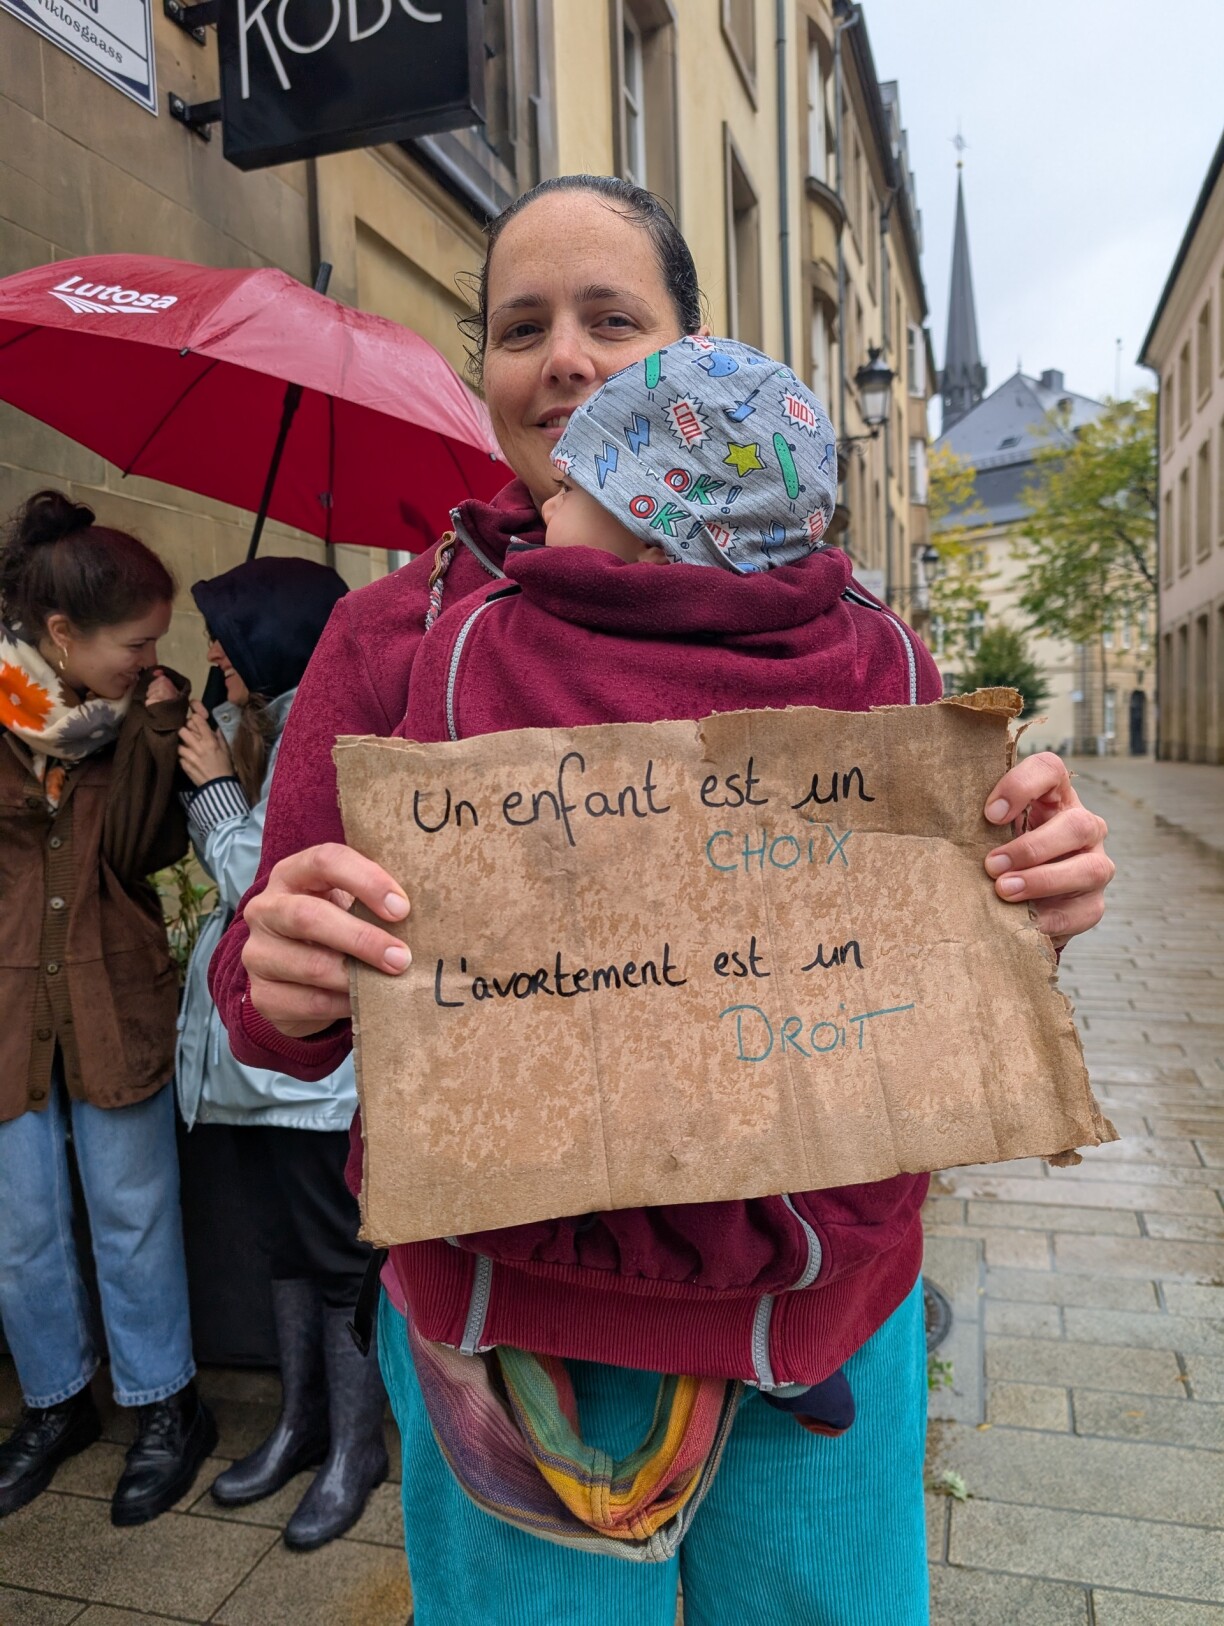 iklosgaass
KOBE
Lutosa
COOL
COOL
OK!
OK!
COOL
Un enfant est un
CHOIX
L'avortement est un
DROIT